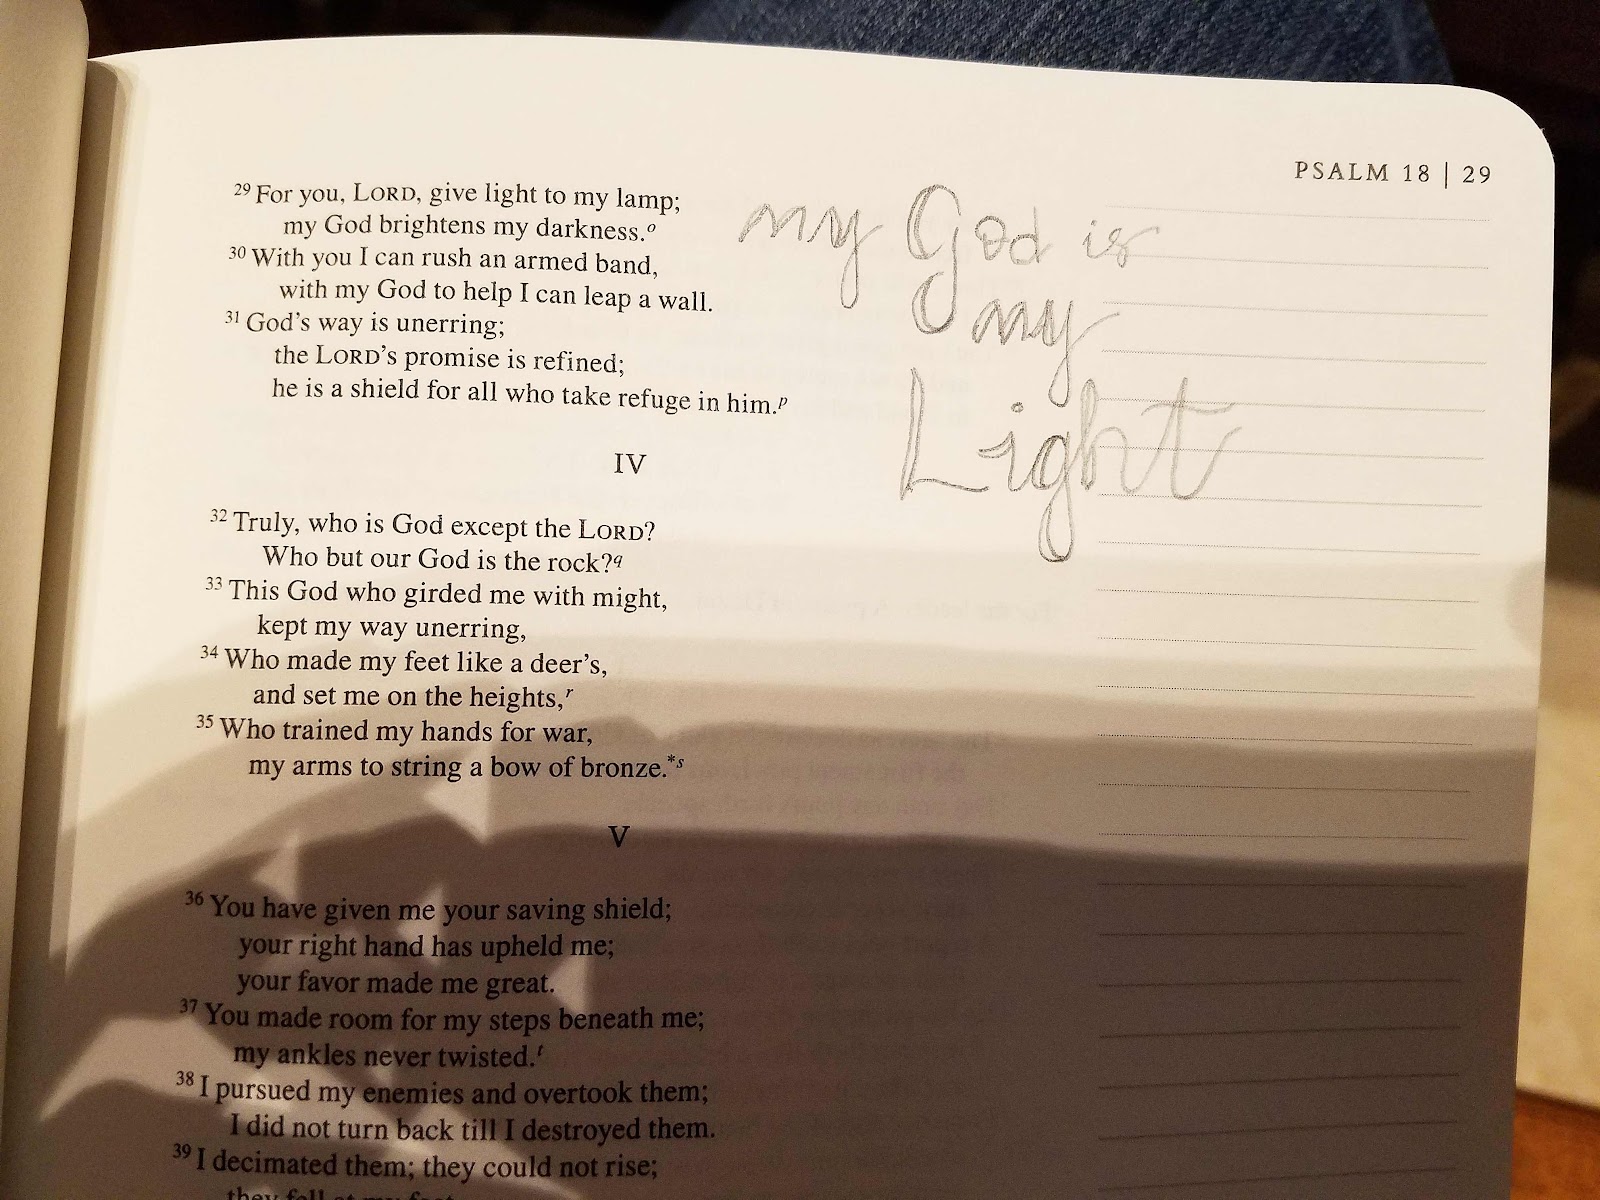 PSALM 18 | 29
29 For you, LORD, give light to my lamp;
my God brightens my darkness.o
30 With you I can rush an armed band,
with my God to help I can leap a wall.
31 God's way is unerring;
the LORD's promise is refined;
he is a shield for all who take refuge in him.p
IV
32 Truly, who is God except the LORD?
Who but our God is the rock?q
33 This God who girded me with might,
kept my way unerring,
34 Who made my feet like a deer's,
and set me on the heights,r
35 Who trained my hands for war,
my arms to string a bow of bronze.*s
V
36 You have given me your saving shield;
your right hand has upheld me;
your favor made me great.
37 You made room for my steps beneath me;
my ankles never twisted.t
38 I pursued my enemies and overtook them;
I did not turn back till I destroyed them.
39 I decimated them; they could not rise;
they fell at my feet
my God is
my
Light